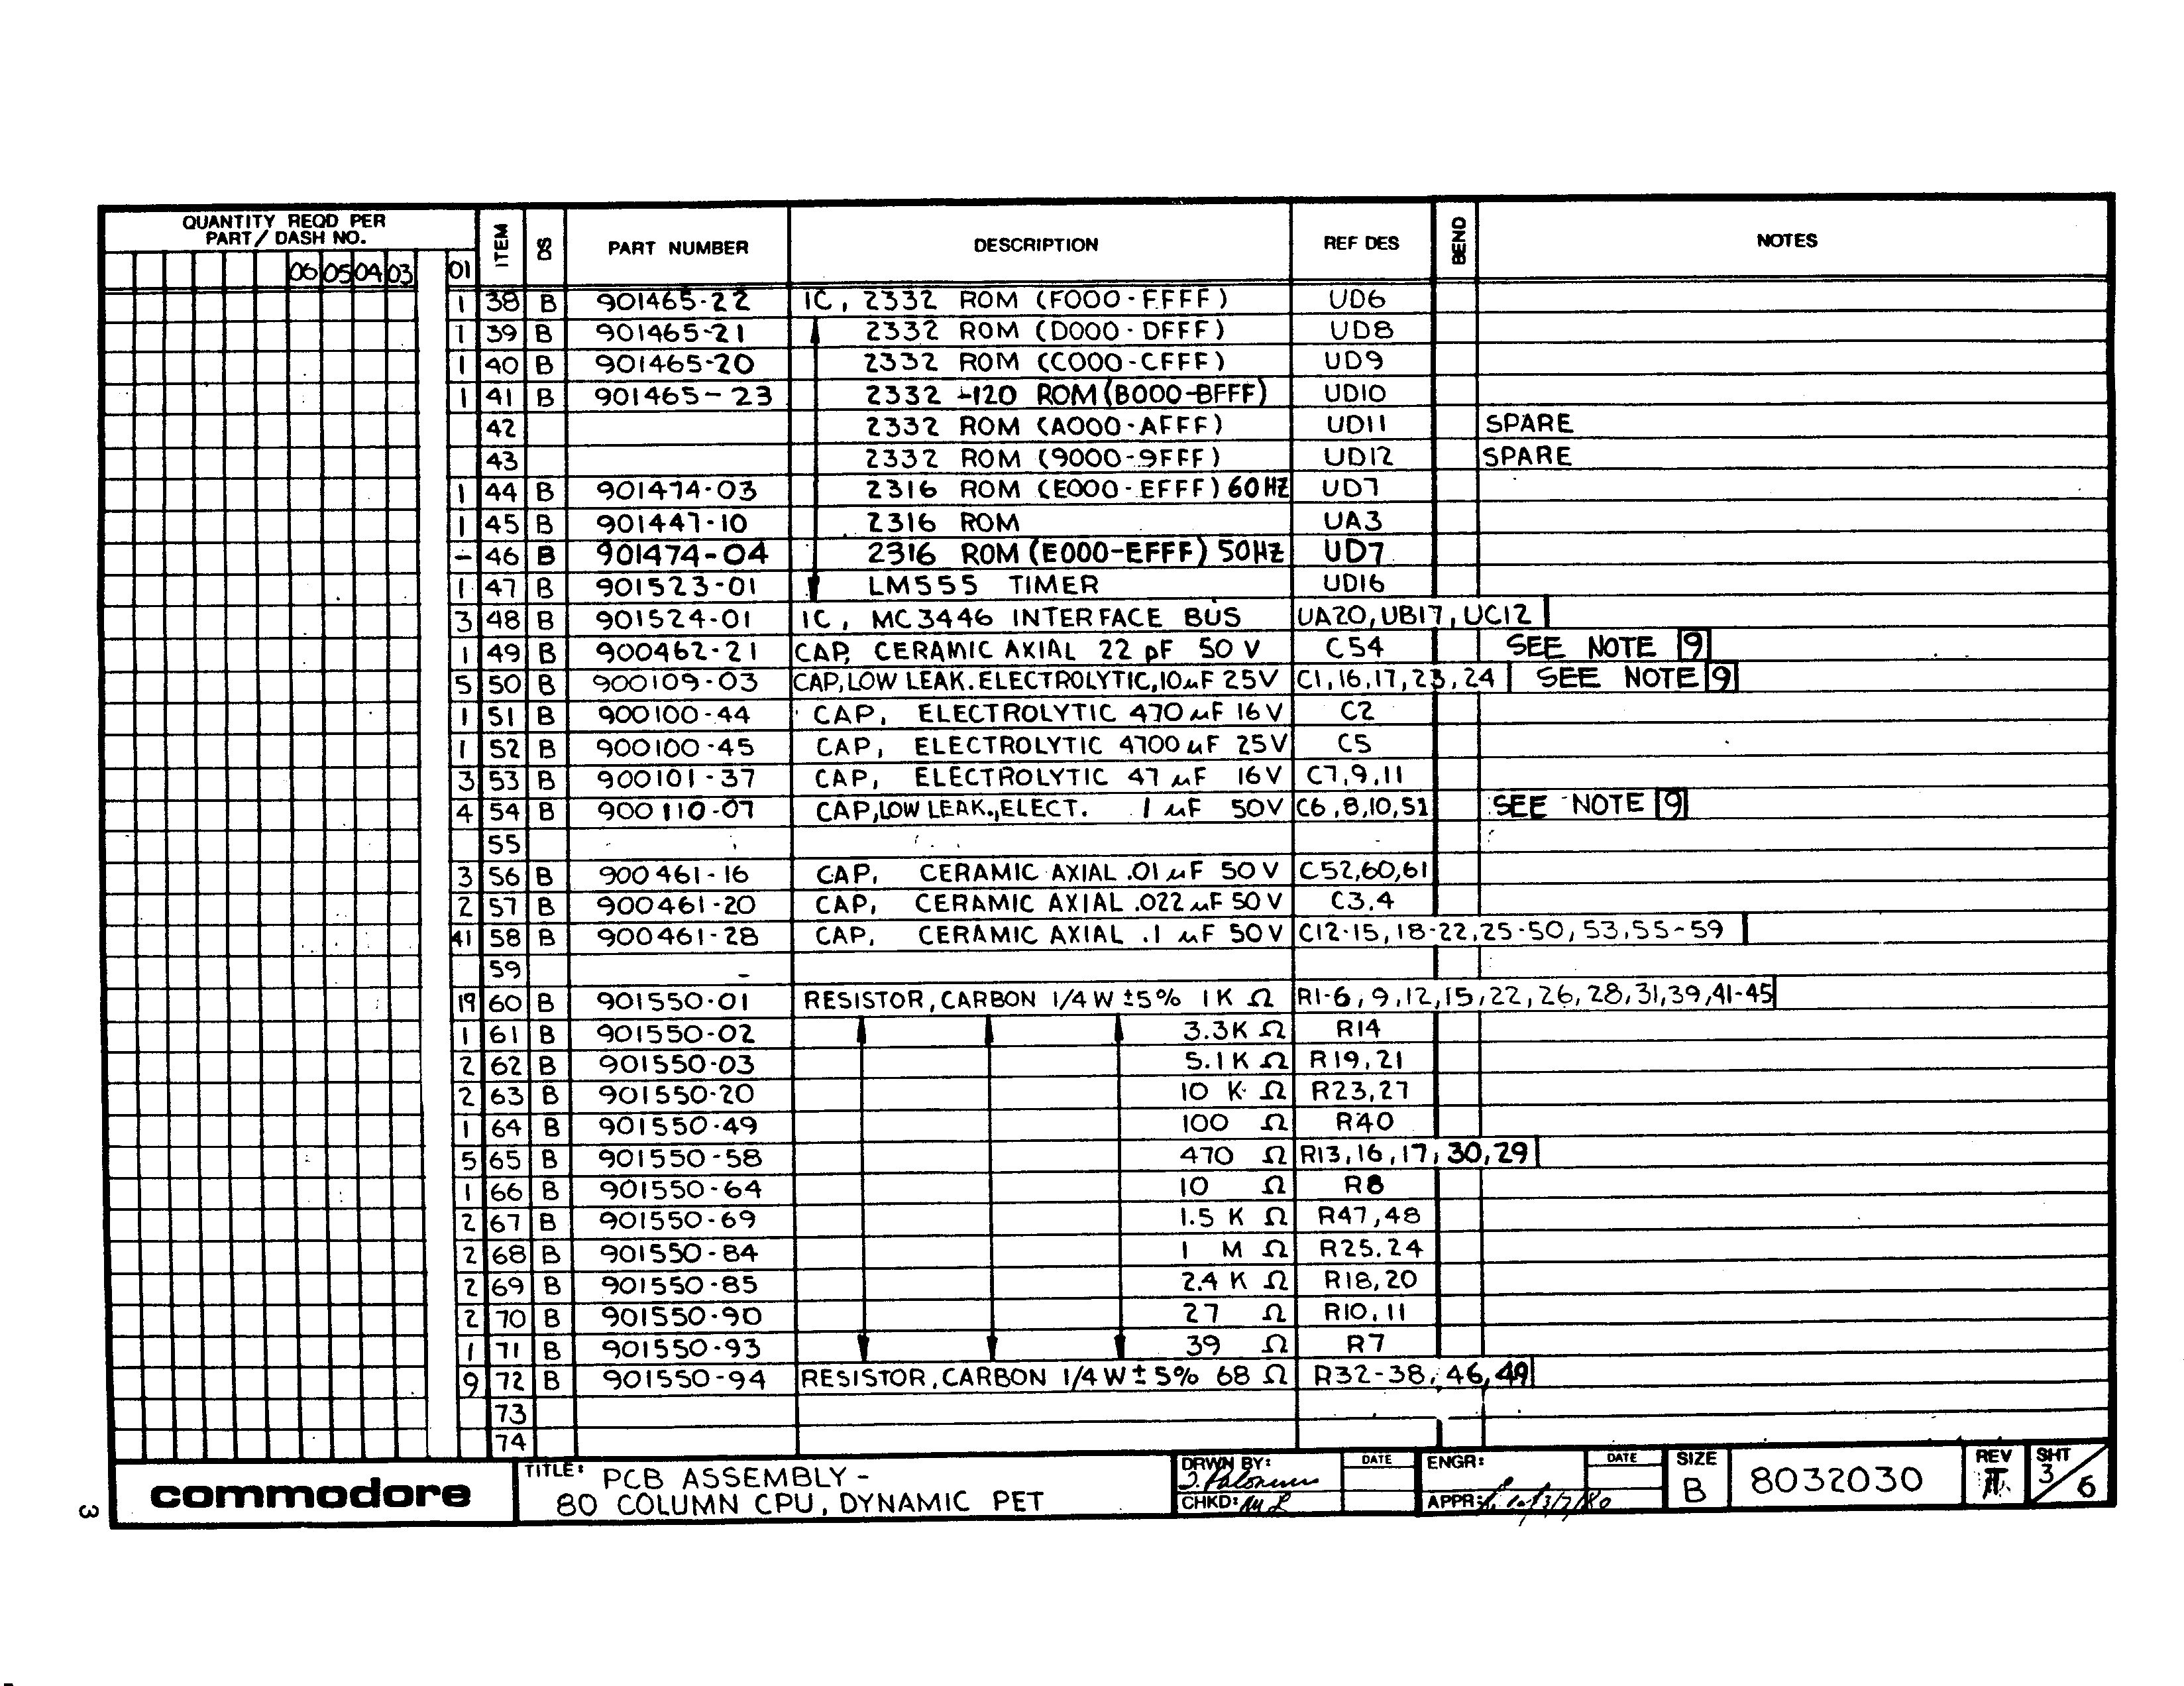 QUANTITY REQD PER
PART / DASH NO.
06 05 04 03 01 ITEM DS PART NUMBER DESCRIPTION REF DES BEND NOTES
1 38 B 901465-22 IC, 2332 ROM (F000-FFFF) UD6
1 39 B 901465-21 2332 ROM (D000-DFFF) UD8
1 40 B 901465-20 2332 ROM (C000-CFFF) UD9
1 41 B 901465-23 2332 -120 ROM (B000-BFFF) UD10
42 2332 ROM (A000-AFFF) UD11 SPARE
43 2332 ROM (9000-9FFF) UD12 SPARE
1 44 B 901474-03 2316 ROM (E000-EFFF) 60HZ UD7
1 45 B 901447-10 2316 ROM UA3
- 46 B 901474-04 2316 ROM (E000-EFFF) 50HZ UD7
1 47 B 901523-01 LM555 TIMER UD16
3 48 B 901524-01 IC, MC3446 INTERFACE BUS UA20,UB17,UC12
1 49 B 900462-21 CAP, CERAMIC AXIAL 22 pF 50 V C54 SEE NOTE 9
5 50 B 900109-03 CAP,LOW LEAK.ELECTROLYTIC,10µF 25V C1,16,17,23,24 SEE NOTE 9
1 51 B 900100-44 CAP, ELECTROLYTIC 470µF 16V C2
1 52 B 900100-45 CAP, ELECTROLYTIC 4700µF 25V C5
3 53 B 900101-37 CAP, ELECTROLYTIC 47 µF 16V C7,9,11
4 54 B 900110-07 CAP,LOW LEAK.,ELECT. 1 µF 50V C6,8,10,51 SEE NOTE 9
55
3 56 B 900461-16 CAP, CERAMIC AXIAL .01µF 50V C52,60,61
2 57 B 900461-20 CAP, CERAMIC AXIAL .022µF 50V C3,4
41 58 B 900461-28 CAP, CERAMIC AXIAL .1 µF 50V C12-15,18-22,25-50,53,55-59
59 -
19 60 B 901550-01 RESISTOR,CARBON 1/4W ±5% 1K Ω R1-6,9,12,15,22,26,28,31,39,41-45
1 61 B 901550-02 3.3K Ω R14
2 62 B 901550-03 5.1K Ω R19,21
2 63 B 901550-20 10 K Ω R23,27
1 64 B 901550-49 100 Ω R40
5 65 B 901550-58 470 Ω R13,16,17,30,29
1 66 B 901550-64 10 Ω R8
2 67 B 901550-69 1.5 K Ω R47,48
2 68 B 901550-84 1 M Ω R25,24
2 69 B 901550-85 2.4 K Ω R18,20
2 70 B 901550-90 27 Ω R10,11
1 71 B 901550-93 39 Ω R7
9 72 B 901550-94 RESISTOR,CARBON 1/4W ±5% 68 Ω R32-38,46,49
73
74
commodore
TITLE: PCB ASSEMBLY-
80 COLUMN CPU, DYNAMIC PET
DRWN BY: DATE
CHKD:
ENGR: DATE
APPR: 3/7/80
SIZE
B
8032030
REV
SHT
3/6
3